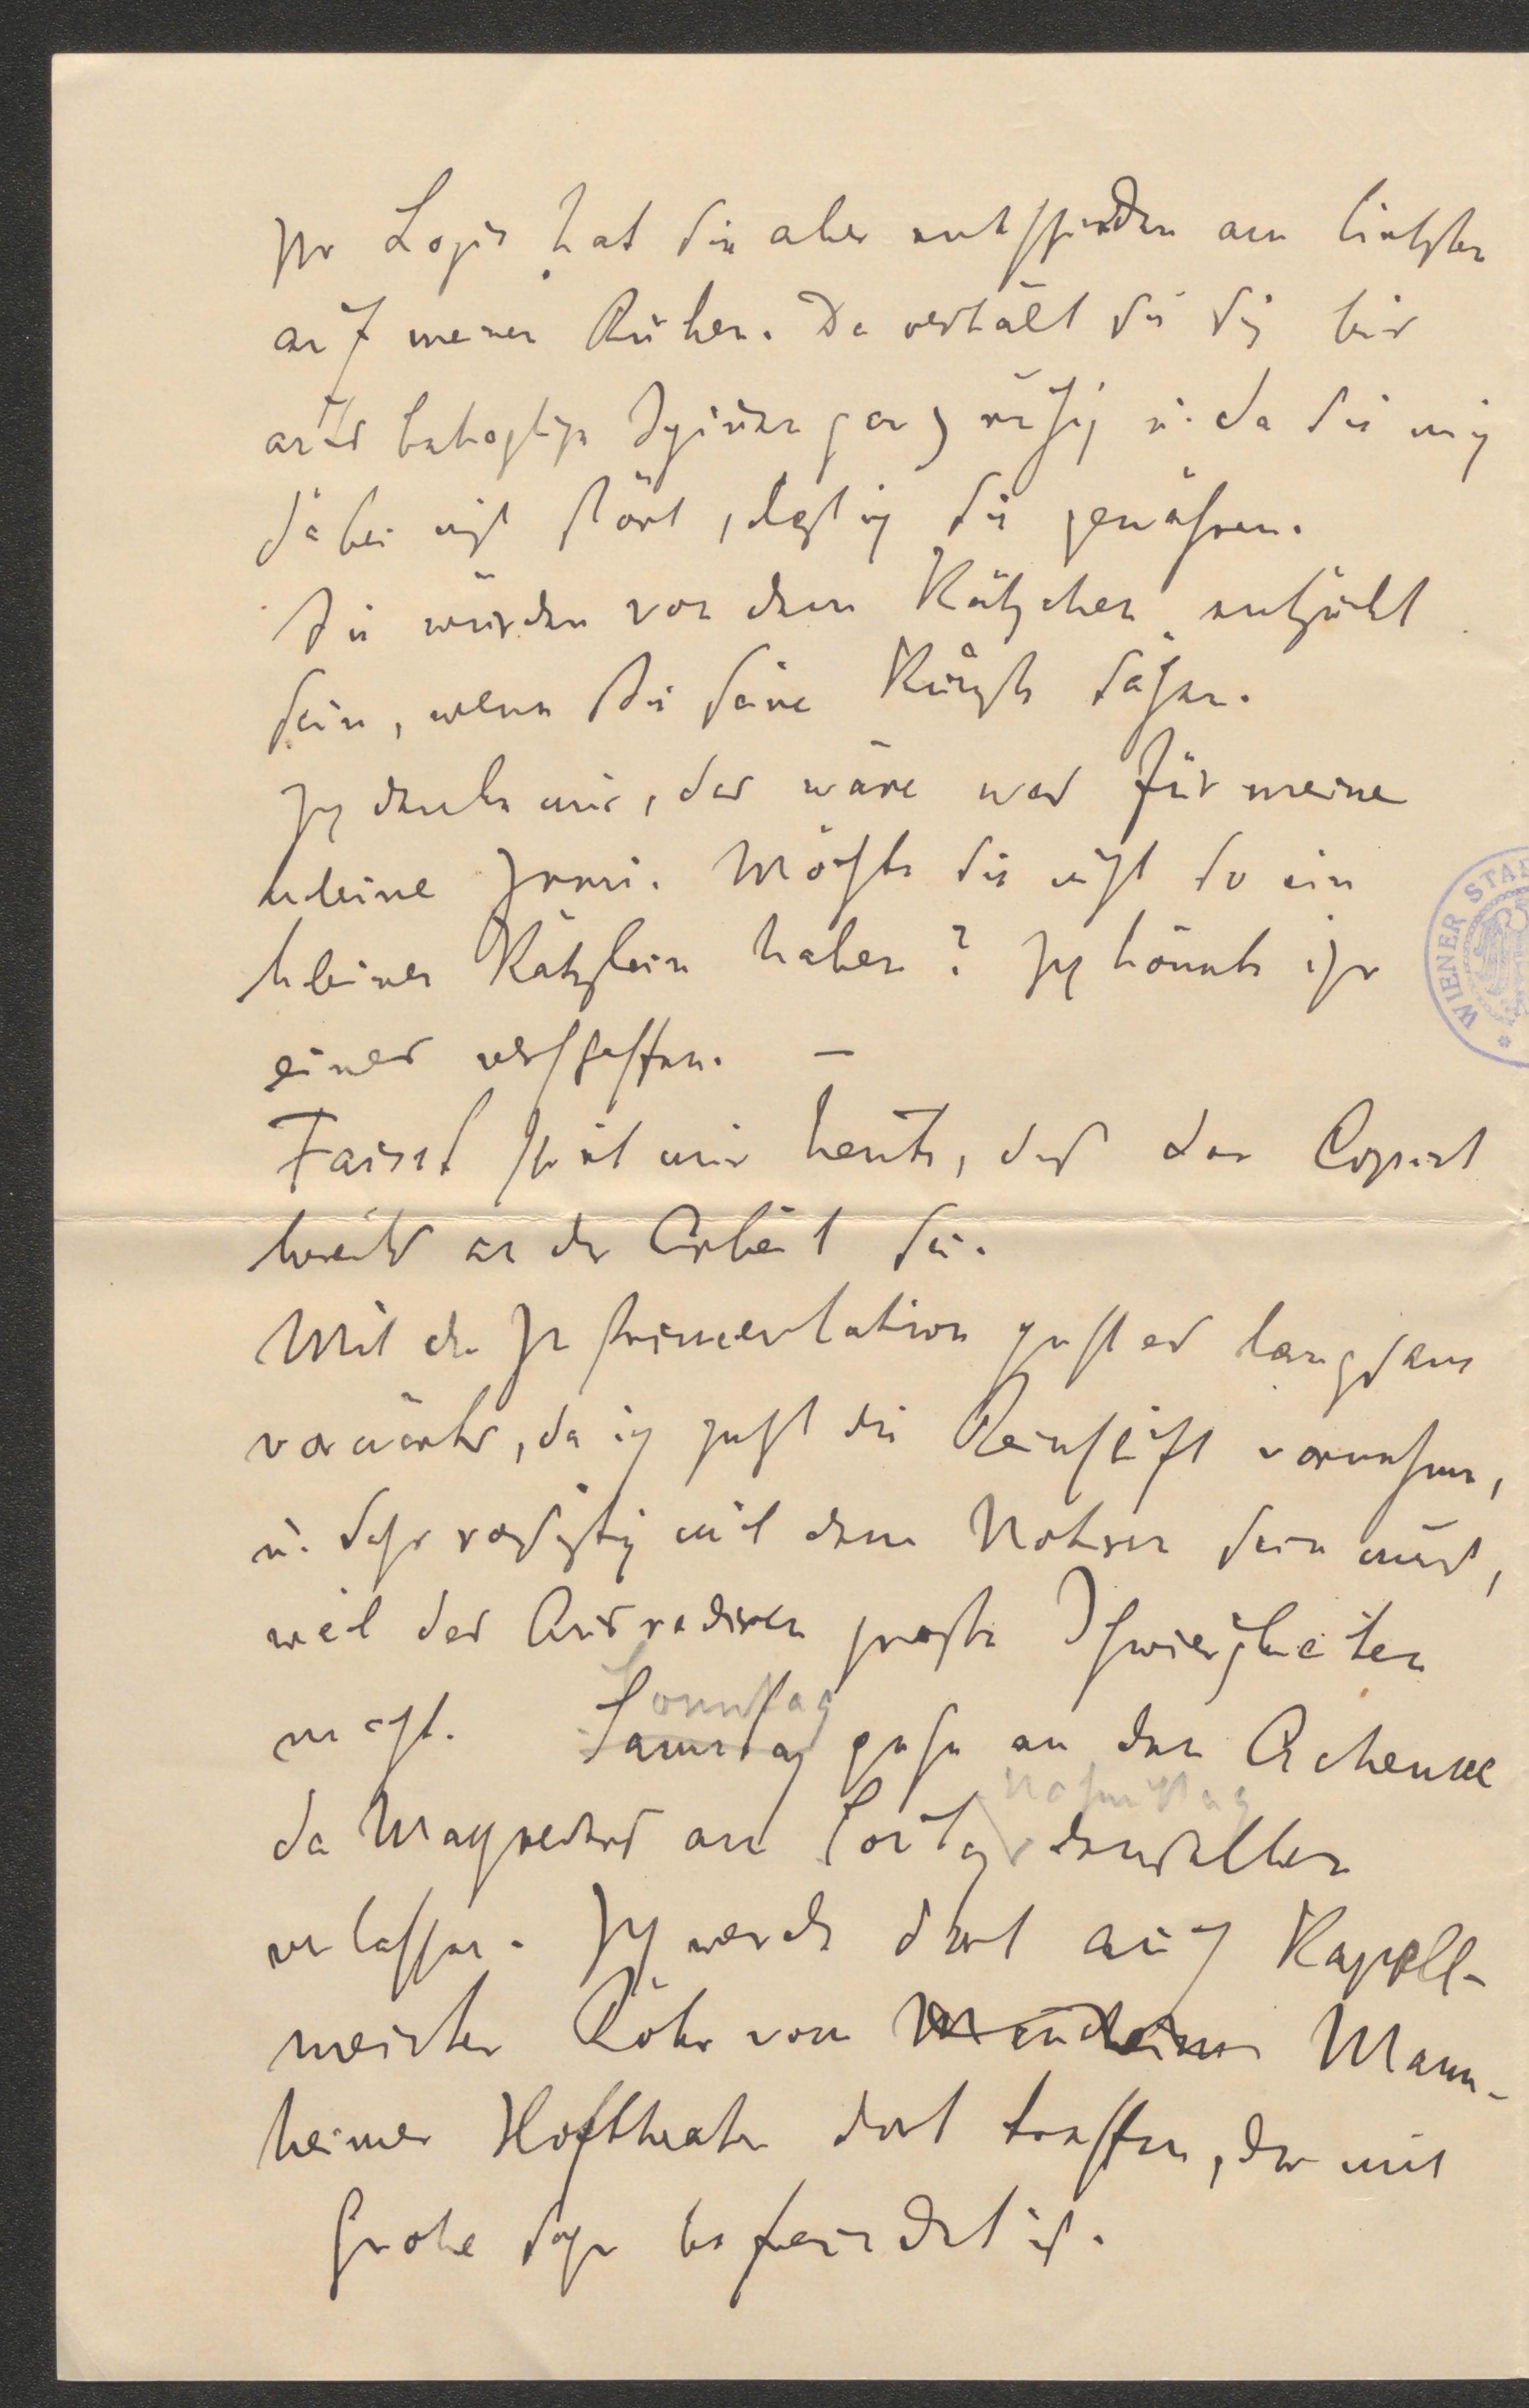 Ihr Logis hat sie aber entschieden am liebsten
auf meinen Rücken. Da verhält sie sich bis
aufs behagliche Schnurren ganz ruhig u. da sie mich
dabei nicht stört, laß ich sie gewähren.
Sie würden von dem Kätzchen entzückt
sein, wenn Sie seine Künste sähen.
Ich denke mir, das wäre was für meine
kleine Irmi. Möchte sie nicht so ein
kleines Kätzlein haben? Ich könnte ihr
eines verschaffen. –
Faisst schreibt mir heute, daß der Copist
bereits an der Arbeit sei.
Mit der Instrumentation geht es langsam
vorwärts, da ich gleich die Reinschrift vornehme,
u. sehr vorsichtig mit dem Notiren sein muß,
weil das Ausradiren große Schwierigkeiten
macht. Samstag Sonntag gehe an den Achensee
da Mayreders am Freitag Nachmittag denselben
verlassen. Ich werde dort auch Kapell-
meister Röhr vom Mann-
heimer Hoftheater dort treffen, der mit
Grohe sehr befreundet ist.
WIENER STAD